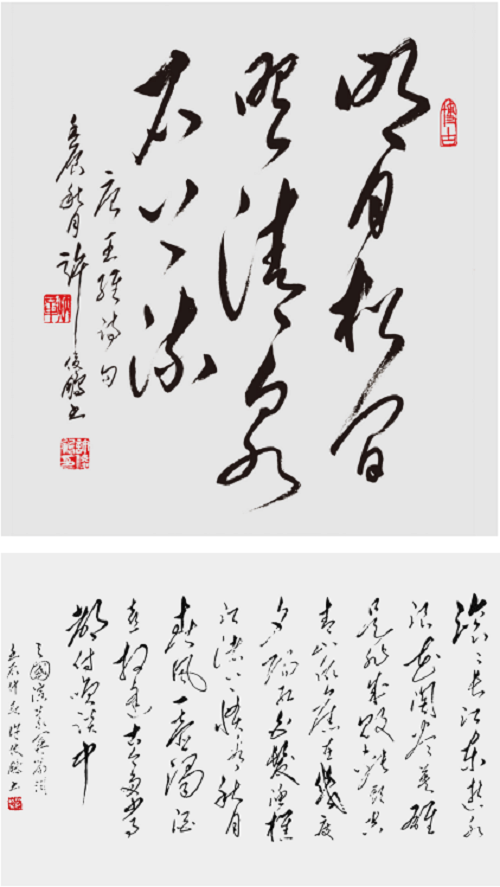 明月松间
照清泉
石上流
唐王维诗句
壬辰秋月许俊鹏书
滚滚长江东逝水
浪花淘尽英雄
是非成败转头空
青山依旧在几度
夕阳红白发渔樵
江渚上惯看秋月
春风一壶浊酒
喜相逢古今多少事
都付笑谈中
三国演义
许俊鹏书